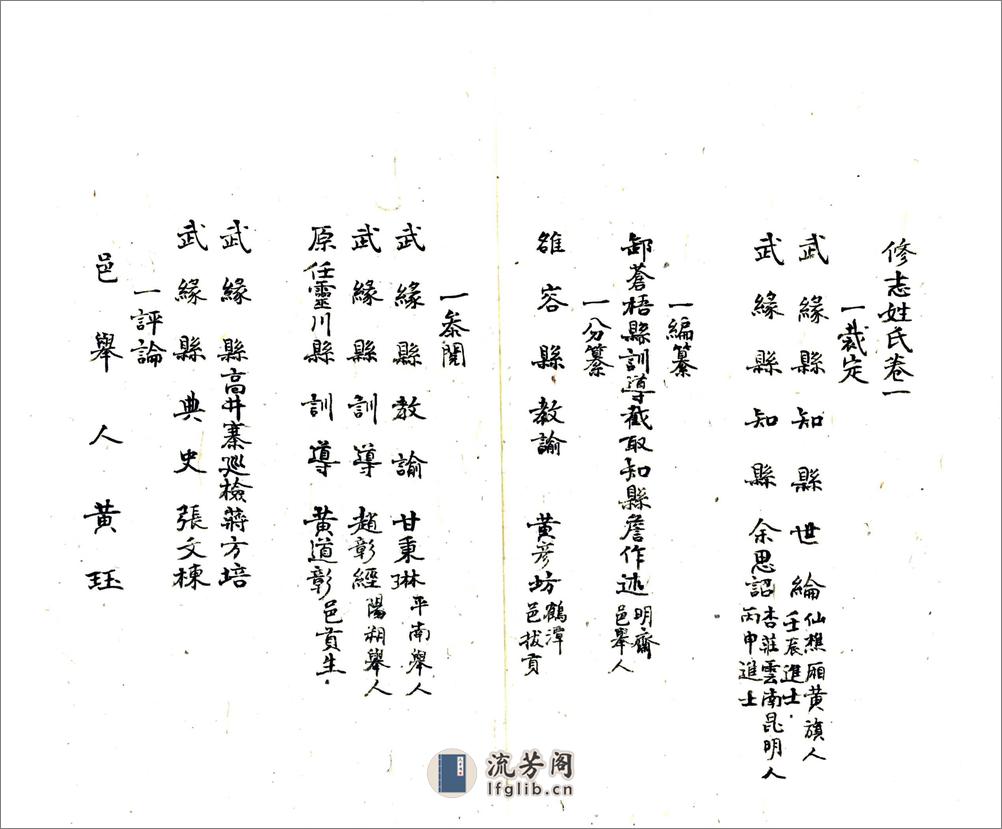 修志姓氏卷一
一裁定
武緣縣知縣世綸仙樵廂黄旗人壬辰進士
武緣縣知縣余思詔杏莊雲南昆明人丙申進士
一編纂
卸蒼梧縣訓導截取知縣詹作述明齋邑舉人
一分纂
雒容縣教諭黄彦坊鶴潭邑拔貢
一叅閱
武緣縣教諭甘秉琳平南舉人
武緣縣訓導趙彰經陽朔舉人
原任靈川縣訓導黄道彰邑貢生
武緣縣高井寨廵檢蔣方培
武緣縣典史張文棟
一評論
邑舉人黄珏
流芳阁
lfglib.cn